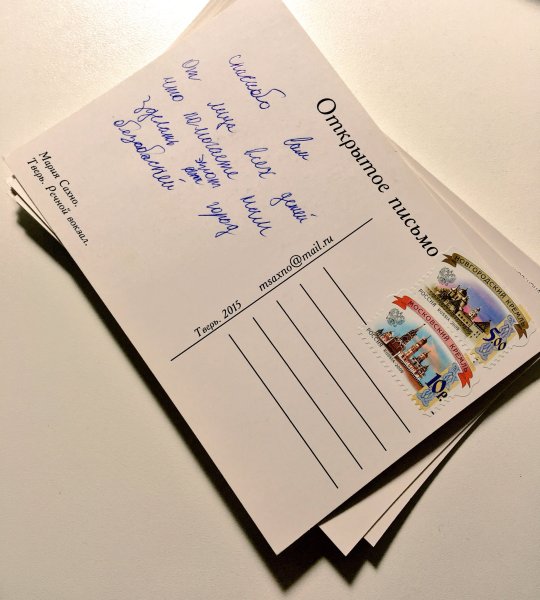 Открытое письмо
спасибо вам
От лица всех детей
что помогаете нам
зделать этот город
Мария Сахно.
Тверь. Речной вокзал.
Тверь, 2015
msaxno@mail.ru
НОВГОРОДСКИЙ КРЕМЛЬ
РОССИЯ RUSSIA 2009
5.00
МОСКОВСКИЙ КРЕМЛЬ
РОССИЯ RUSSIA 2009
10р.